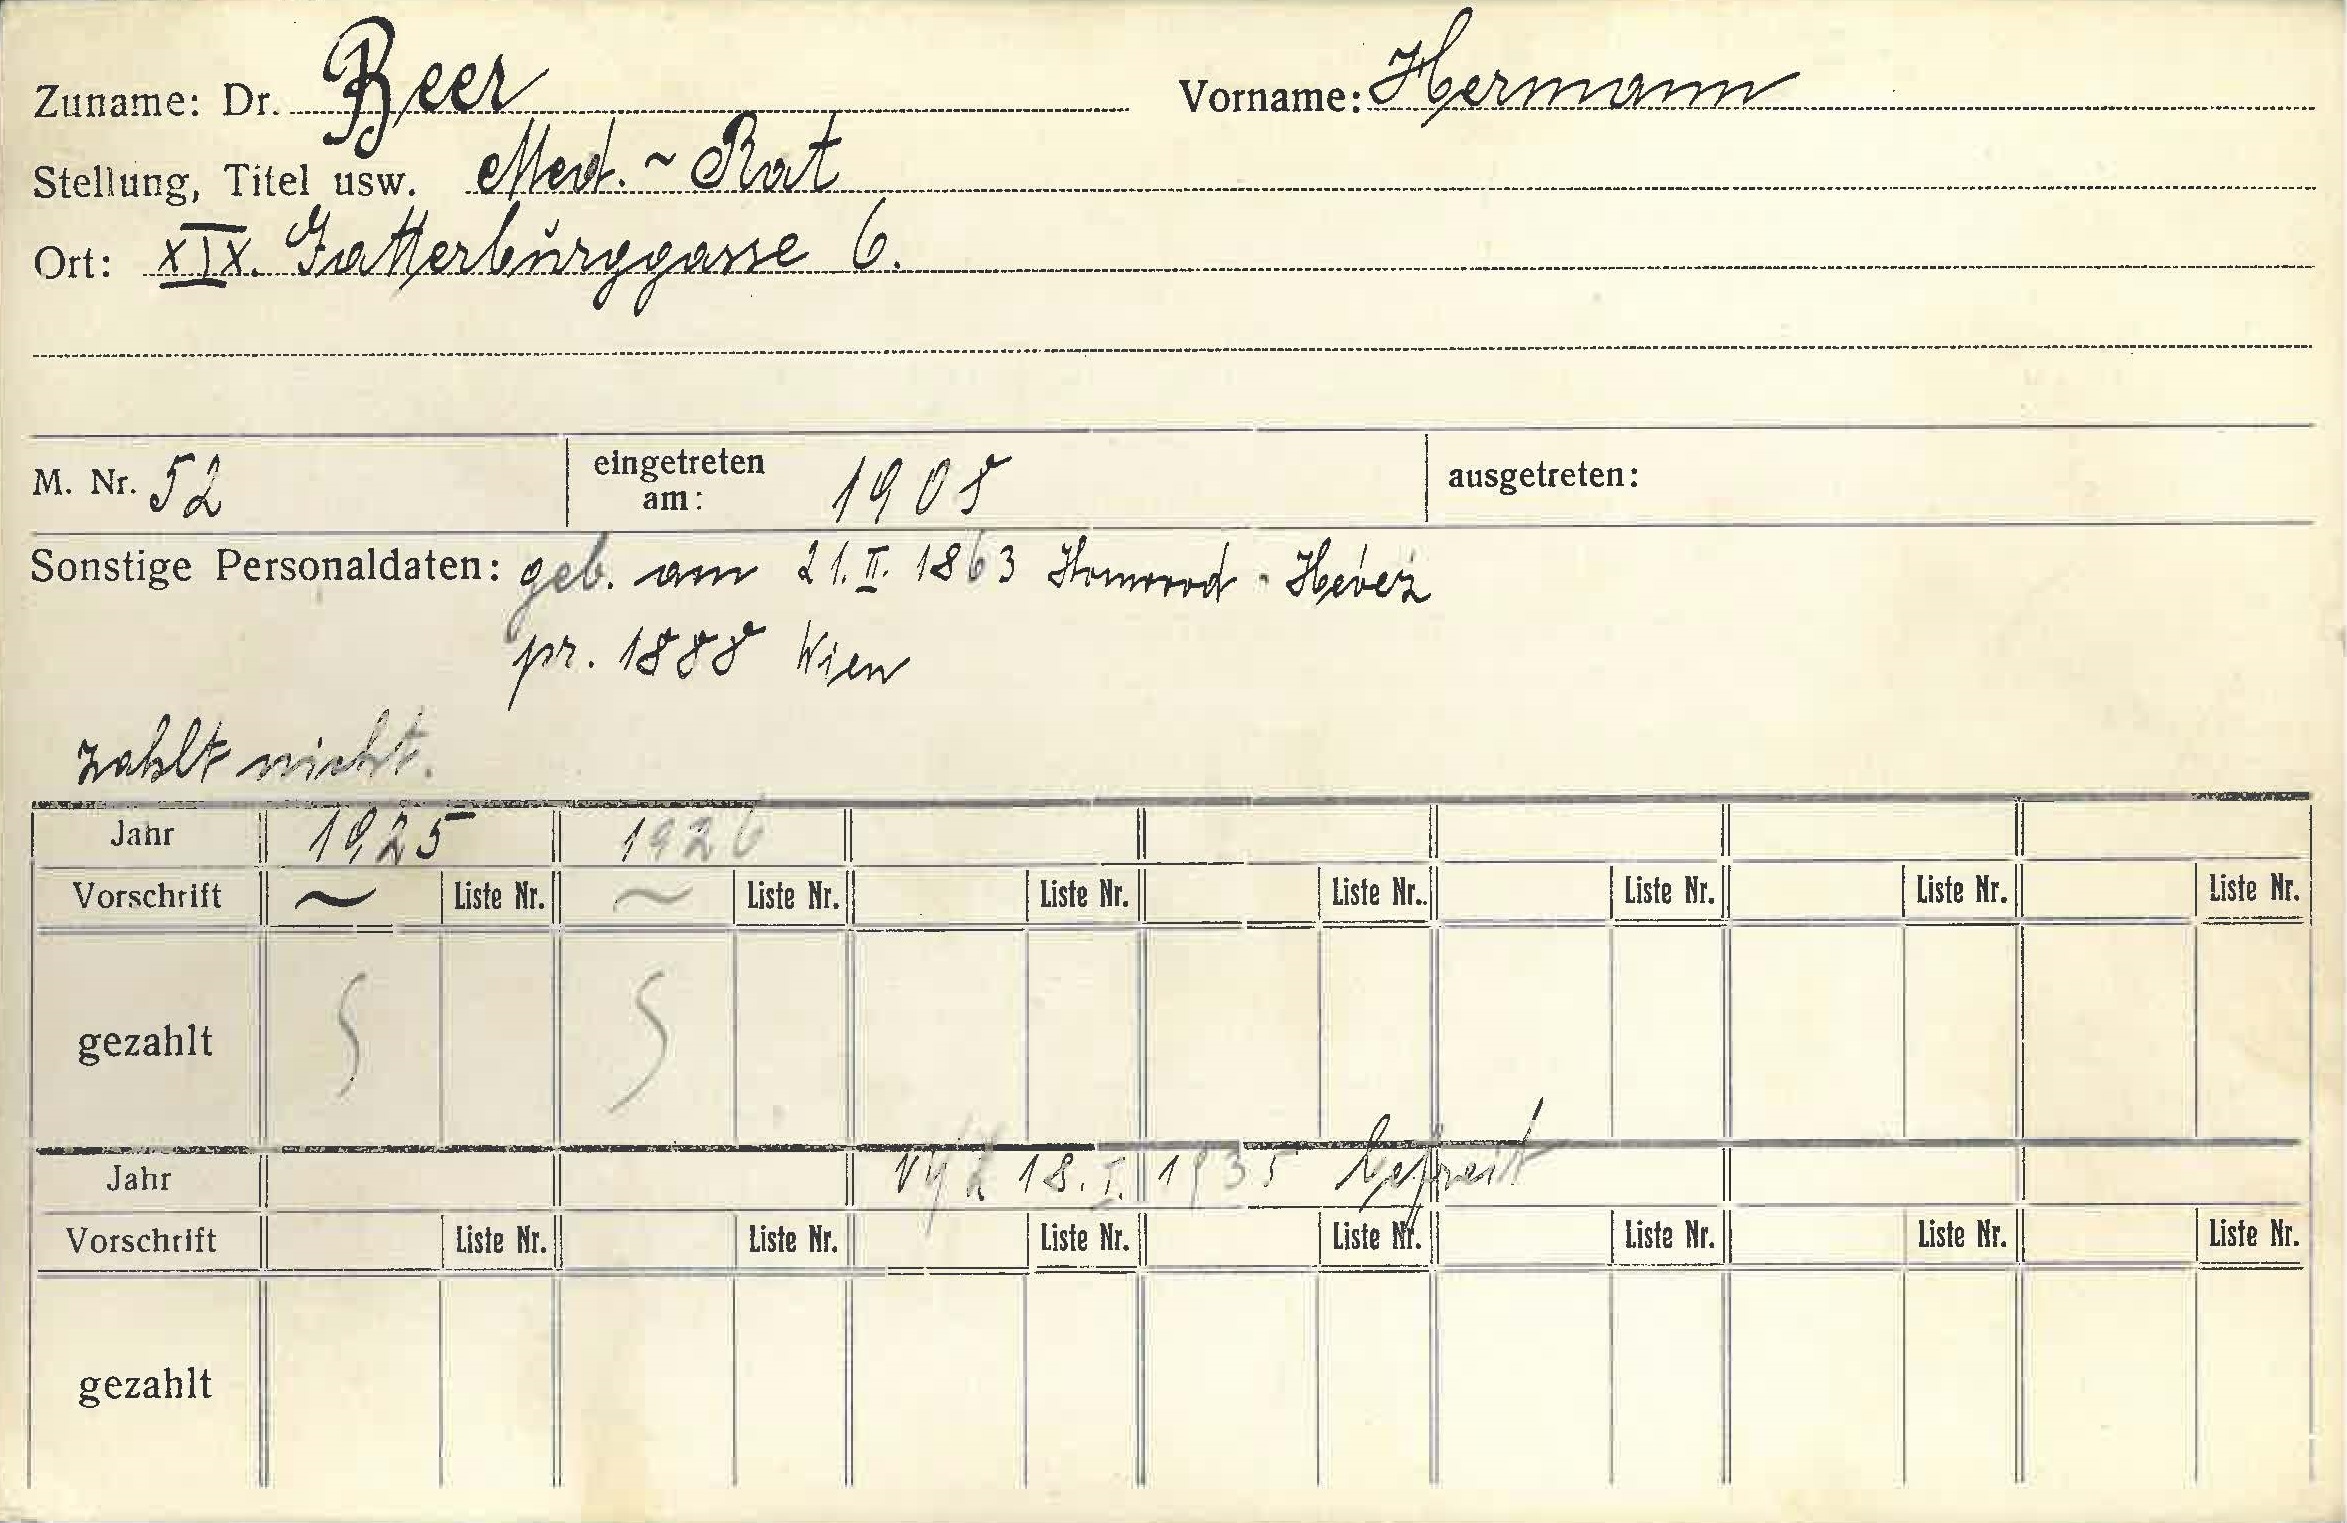 Zuname: Dr. Beer Vorname: Hermann
Stellung, Titel usw. Med. ~ Rat
Ort: XIX. Gatterburggasse 6.
M. Nr. 52 eingetreten am: 1908 ausgetreten:
Sonstige Personaldaten: geb. am 21. II. 1863
pr. 1888 Wien
zahlt nicht.
Jahr 1925 1926
Vorschrift ~ Liste Nr. ~ Liste Nr. Liste Nr. Liste Nr. Liste Nr. Liste Nr. Liste Nr.
gezahlt
Jahr 18. I. 1935 befreit
Vorschrift Liste Nr. Liste Nr. Liste Nr. Liste Nr. Liste Nr. Liste Nr. Liste Nr.
gezahlt